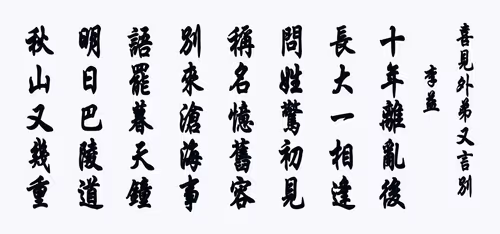 喜見外弟又言別
李益
十年離亂後
長大一相逢
問姓驚初見
稱名憶舊容
別來滄海事
語罷暮天鐘
明日巴陵道
秋山又幾重